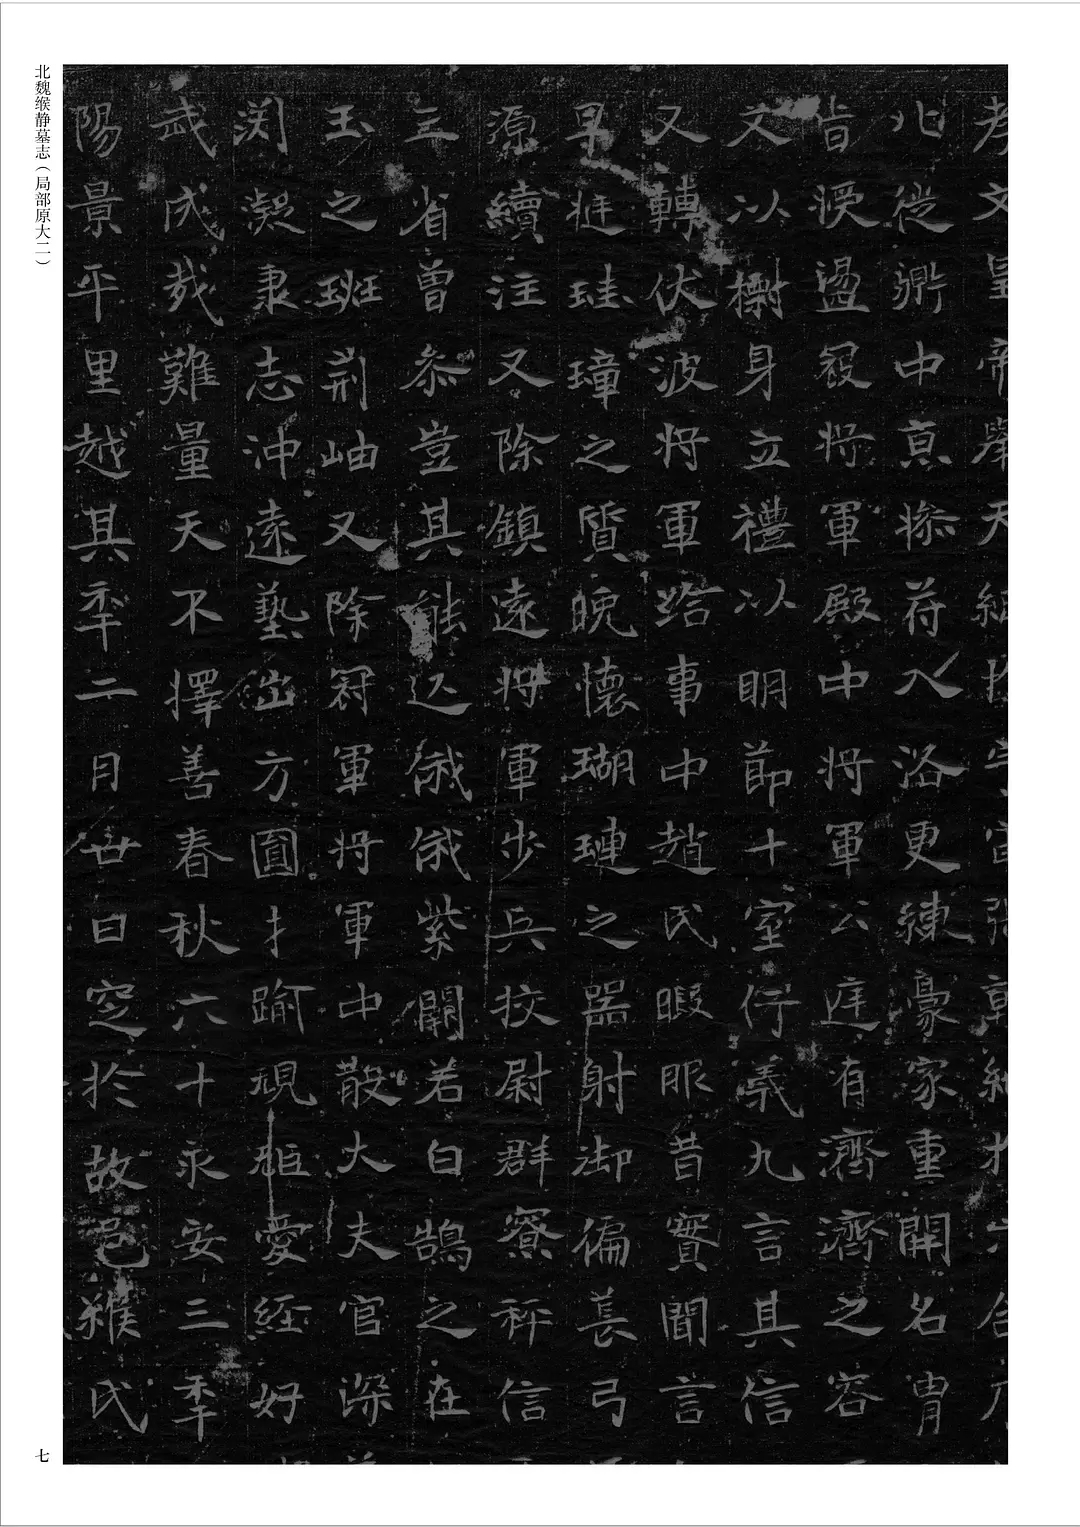 孝文皇帝舉天網
兆從鼎中京添符入洛更練豪家重開名胄
旨授盪寇將軍殿中將軍公庭有濟濟之容
文以樹身立禮以明節十室佇義九言其信
又轉伏波將軍給事中趙氏暇眠昔實聞言
早挺珪璋之質晚懷瑚璉之器射御偏長弓
源續注又除鎮遠將軍步兵校尉群寮秤信
三省曾參豈其能俄俄紫闥若白鵠之在
玉之班荊岫又除冠軍將軍中散大夫官深
渕凝秉志沖遠藝出方圓才踰規矩愛經好
武成哉難量天不擇善春秋六十永安三年
陽景平里越其年二月廿日窆於故邑緱氏
北魏缑静墓志（局部原大二）
七